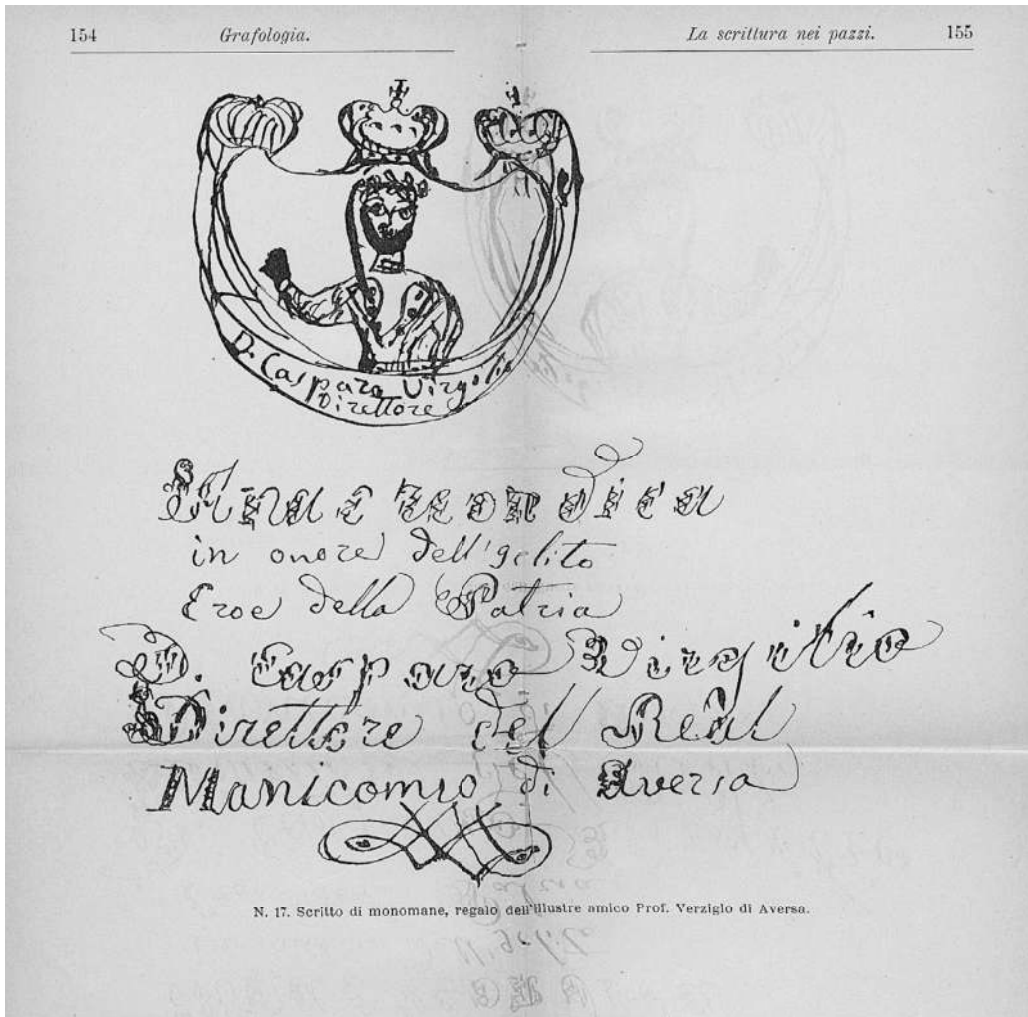 154 Grafologia.
La scrittura nei pazzi. 155
D. Casparo Virgolio
Direttore
Anacreondica
in onore dell'gelito
Eroe della Patria
D. Casparo Virgilio
Direttore del Real
Manicomio di Aversa
N. 17. Scritto di monomane, regalo dell'illustre amico Prof. Verziglo di Aversa.